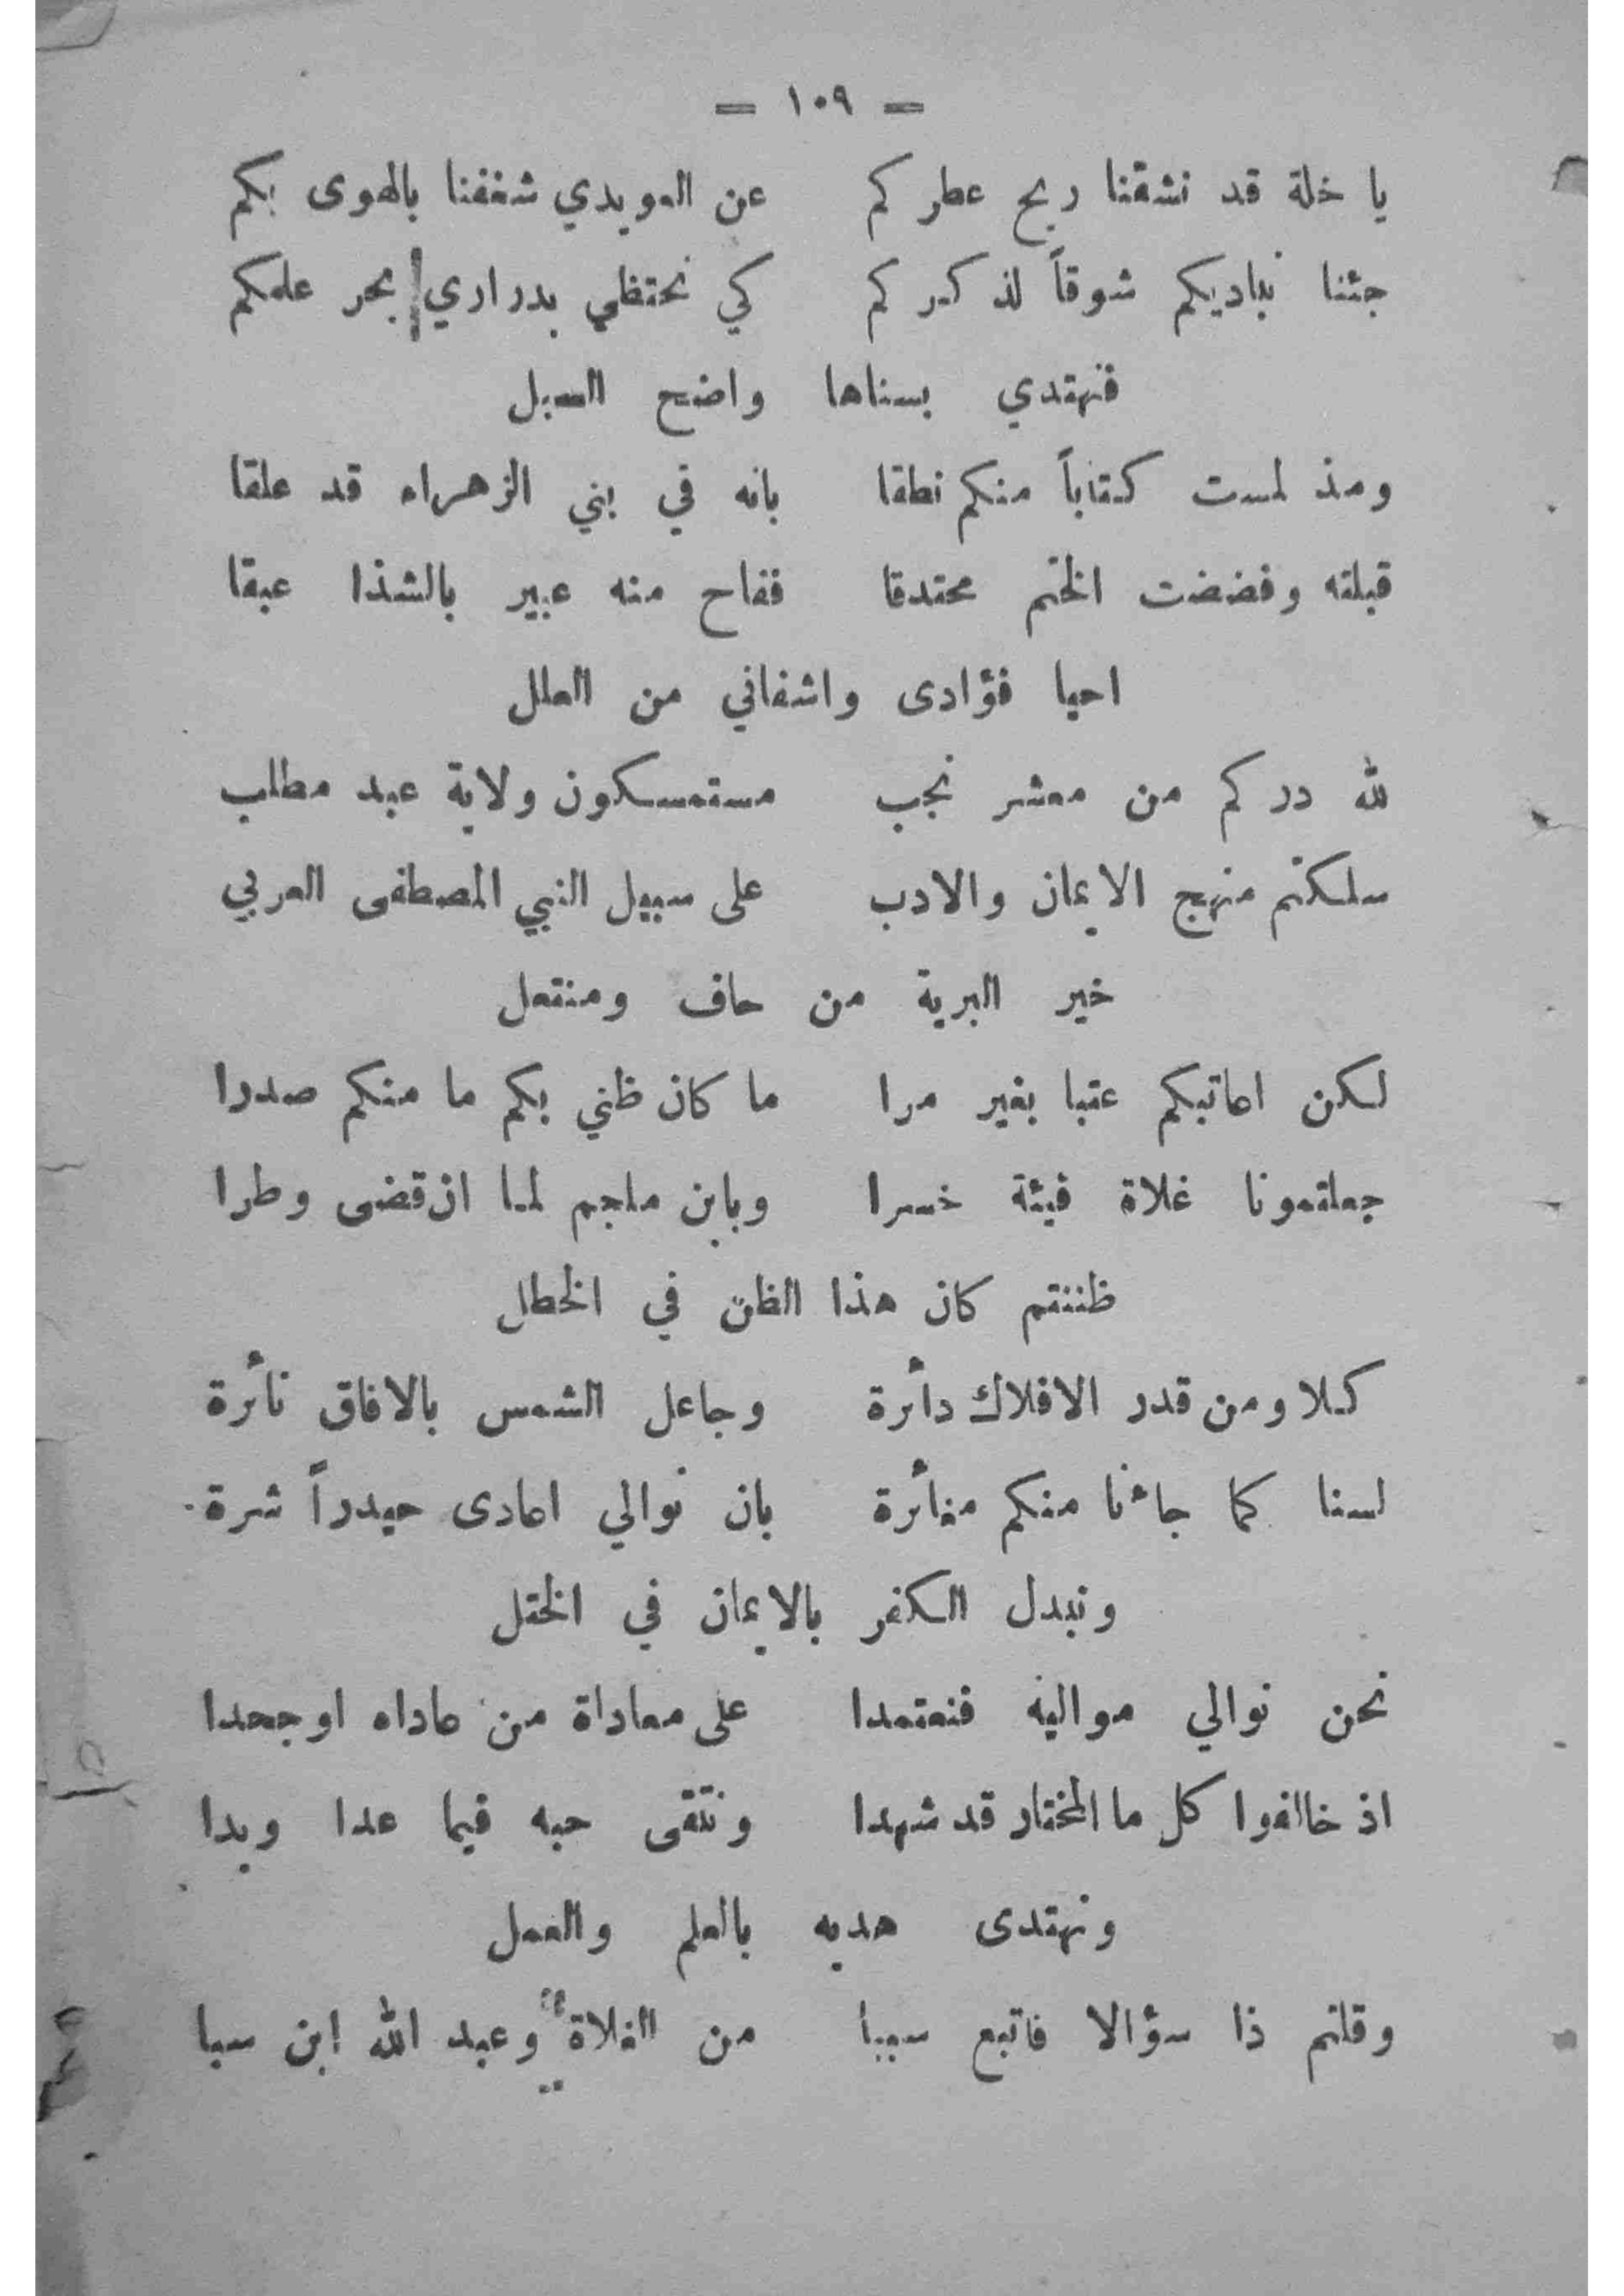 — ١٠٩ —
يا خلة قد نشقنا ريح عطركم عن السويدي شغفنا بالهوى بكم
جئنا بناديكم شوقاً لذكركم كي نحتظي بدراري بحر علمكم
فنهتدي بسناها واضح السبل
ومذ لمست كتاباً منكم نطقا بانه في بني الزهراء قد علقا
قبلته وفضضت الختم محتدقا ففاح منه عبير بالشذا عبقا
احيا فؤادى واشفاني من العلل
لله دركم من معشر نجب مستمسكون ولاية عبد مطلب
سلكتم منهج الايمان والادب على سبيل النبي المصطفى العربي
خير البرية من حاف ومنتعل
لكن اعاتبكم عتبا بغير مرا ما كان ظني بكم ما منكم صدرا
جعلتمونا غلاة فيئة خسرا وبابن ملجم لما ان قضى وطرا
ظننتم كان هذا الظن في الخطل
كلا ومن قدر الافلاك دأرة وجاعل الشمس بالافاق نأرة
لسنا كما جاءنا منكم مغأرة بان نوالي اعادى حيدراً شرة
ونبدل الكفر بالايمان في الختل
نحن نوالي مواليه فنعتمدا على معاداة من عاداه اوجحدا
اذ خالفوا كل ما المختار قد شهدا ونتقى حبه فيما عدا وبدا
ونهتدى هديه بالعلم والعمل
وقلتم ذا سؤالا فاتبع سببا من الغلاة وعبد الله ابن سبا